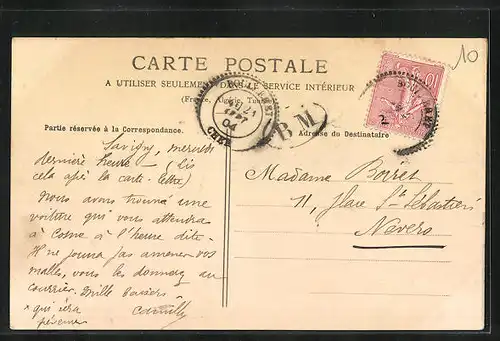 CARTE POSTALE
A UTILISER SEULEMENT DANS LE SERVICE INTÉRIEUR
(France, Algérie, Tunisie)
Partie réservée à la Correspondance.
Adresse du Destinataire
10
BOULLERET
04
CHER
BM
10
Savigny, mercredi
dernière heure — (lis
cela après la carte-lettre)
Nous avons trouvé une
voiture qui vous attendra
à Cosne à l'heure dite.
Il ne pourra pas amener vos
malles, vous les donnerez au
courrier. Mille baisers
qui sera
Camille
Madame Borret
11, Place St Sébastien
Nevers